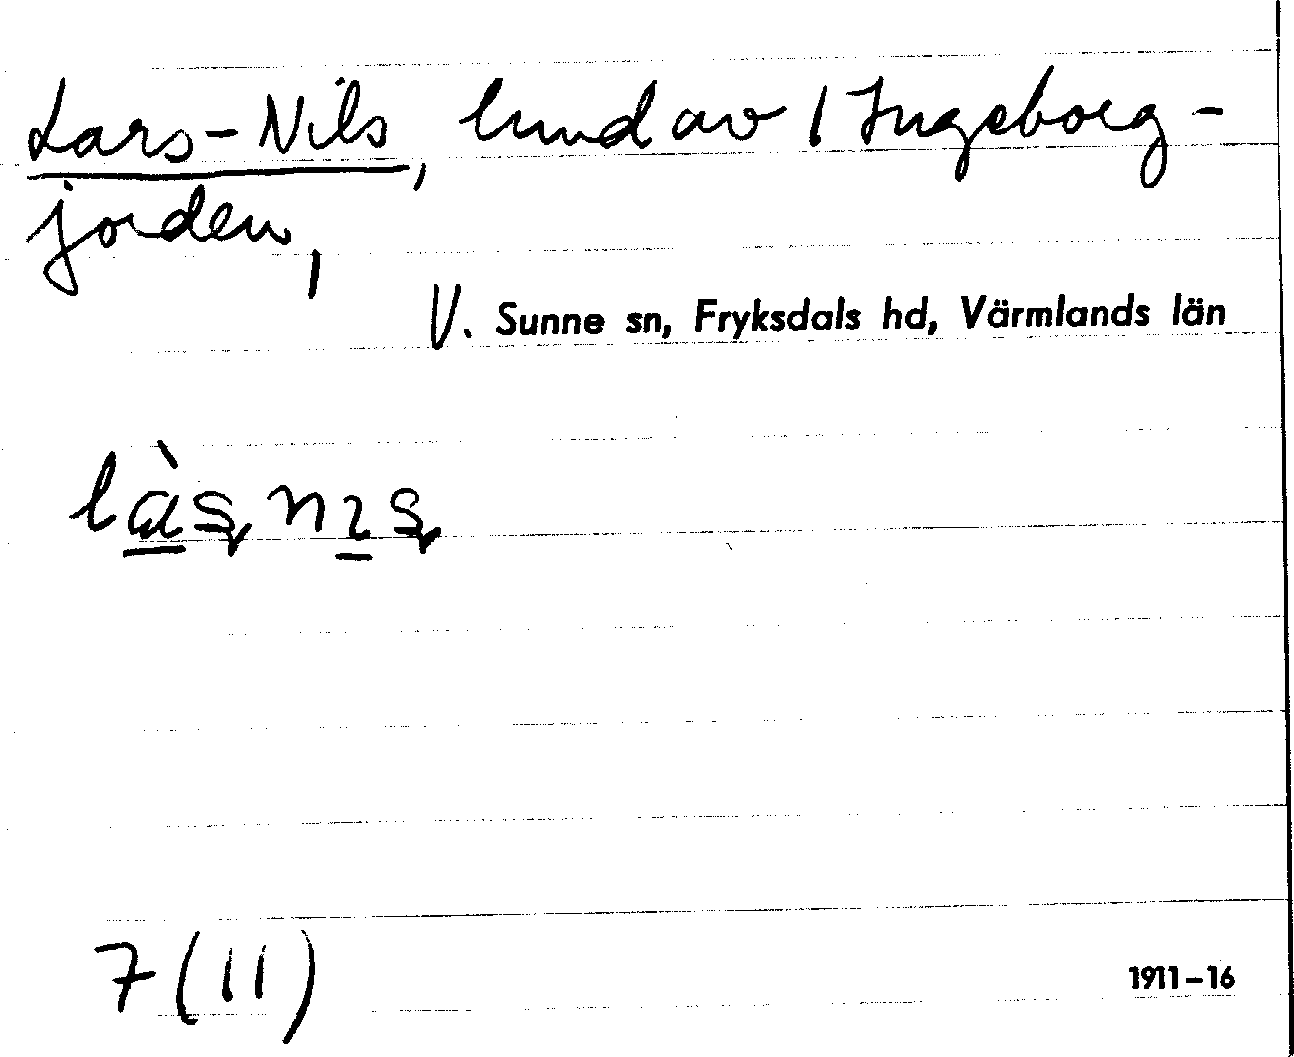 Lars-Nils, lund av 1 Ingeborg-
jorden,
V. Sunne sn, Fryksdals hd, Värmlands län
7 (11)
1911–16